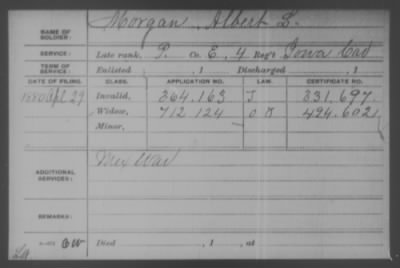 NAME OF SOLDIER: Morgan, Albert L.
SERVICE: Late rank, P. Co. E, 4 Reg't Iowa Cav
TERM OF SERVICE: Enlisted , 1 Discharged , 1
DATE OF FILING. CLASS. APPLICATION NO. LAW. CERTIFICATE NO.
1880 Apl 29 Invalid, 364.163 J 331.697.
Widow, 712 124
Minor,
ADDITIONAL SERVICES: Mex War
REMARKS:
Died , 1 , at